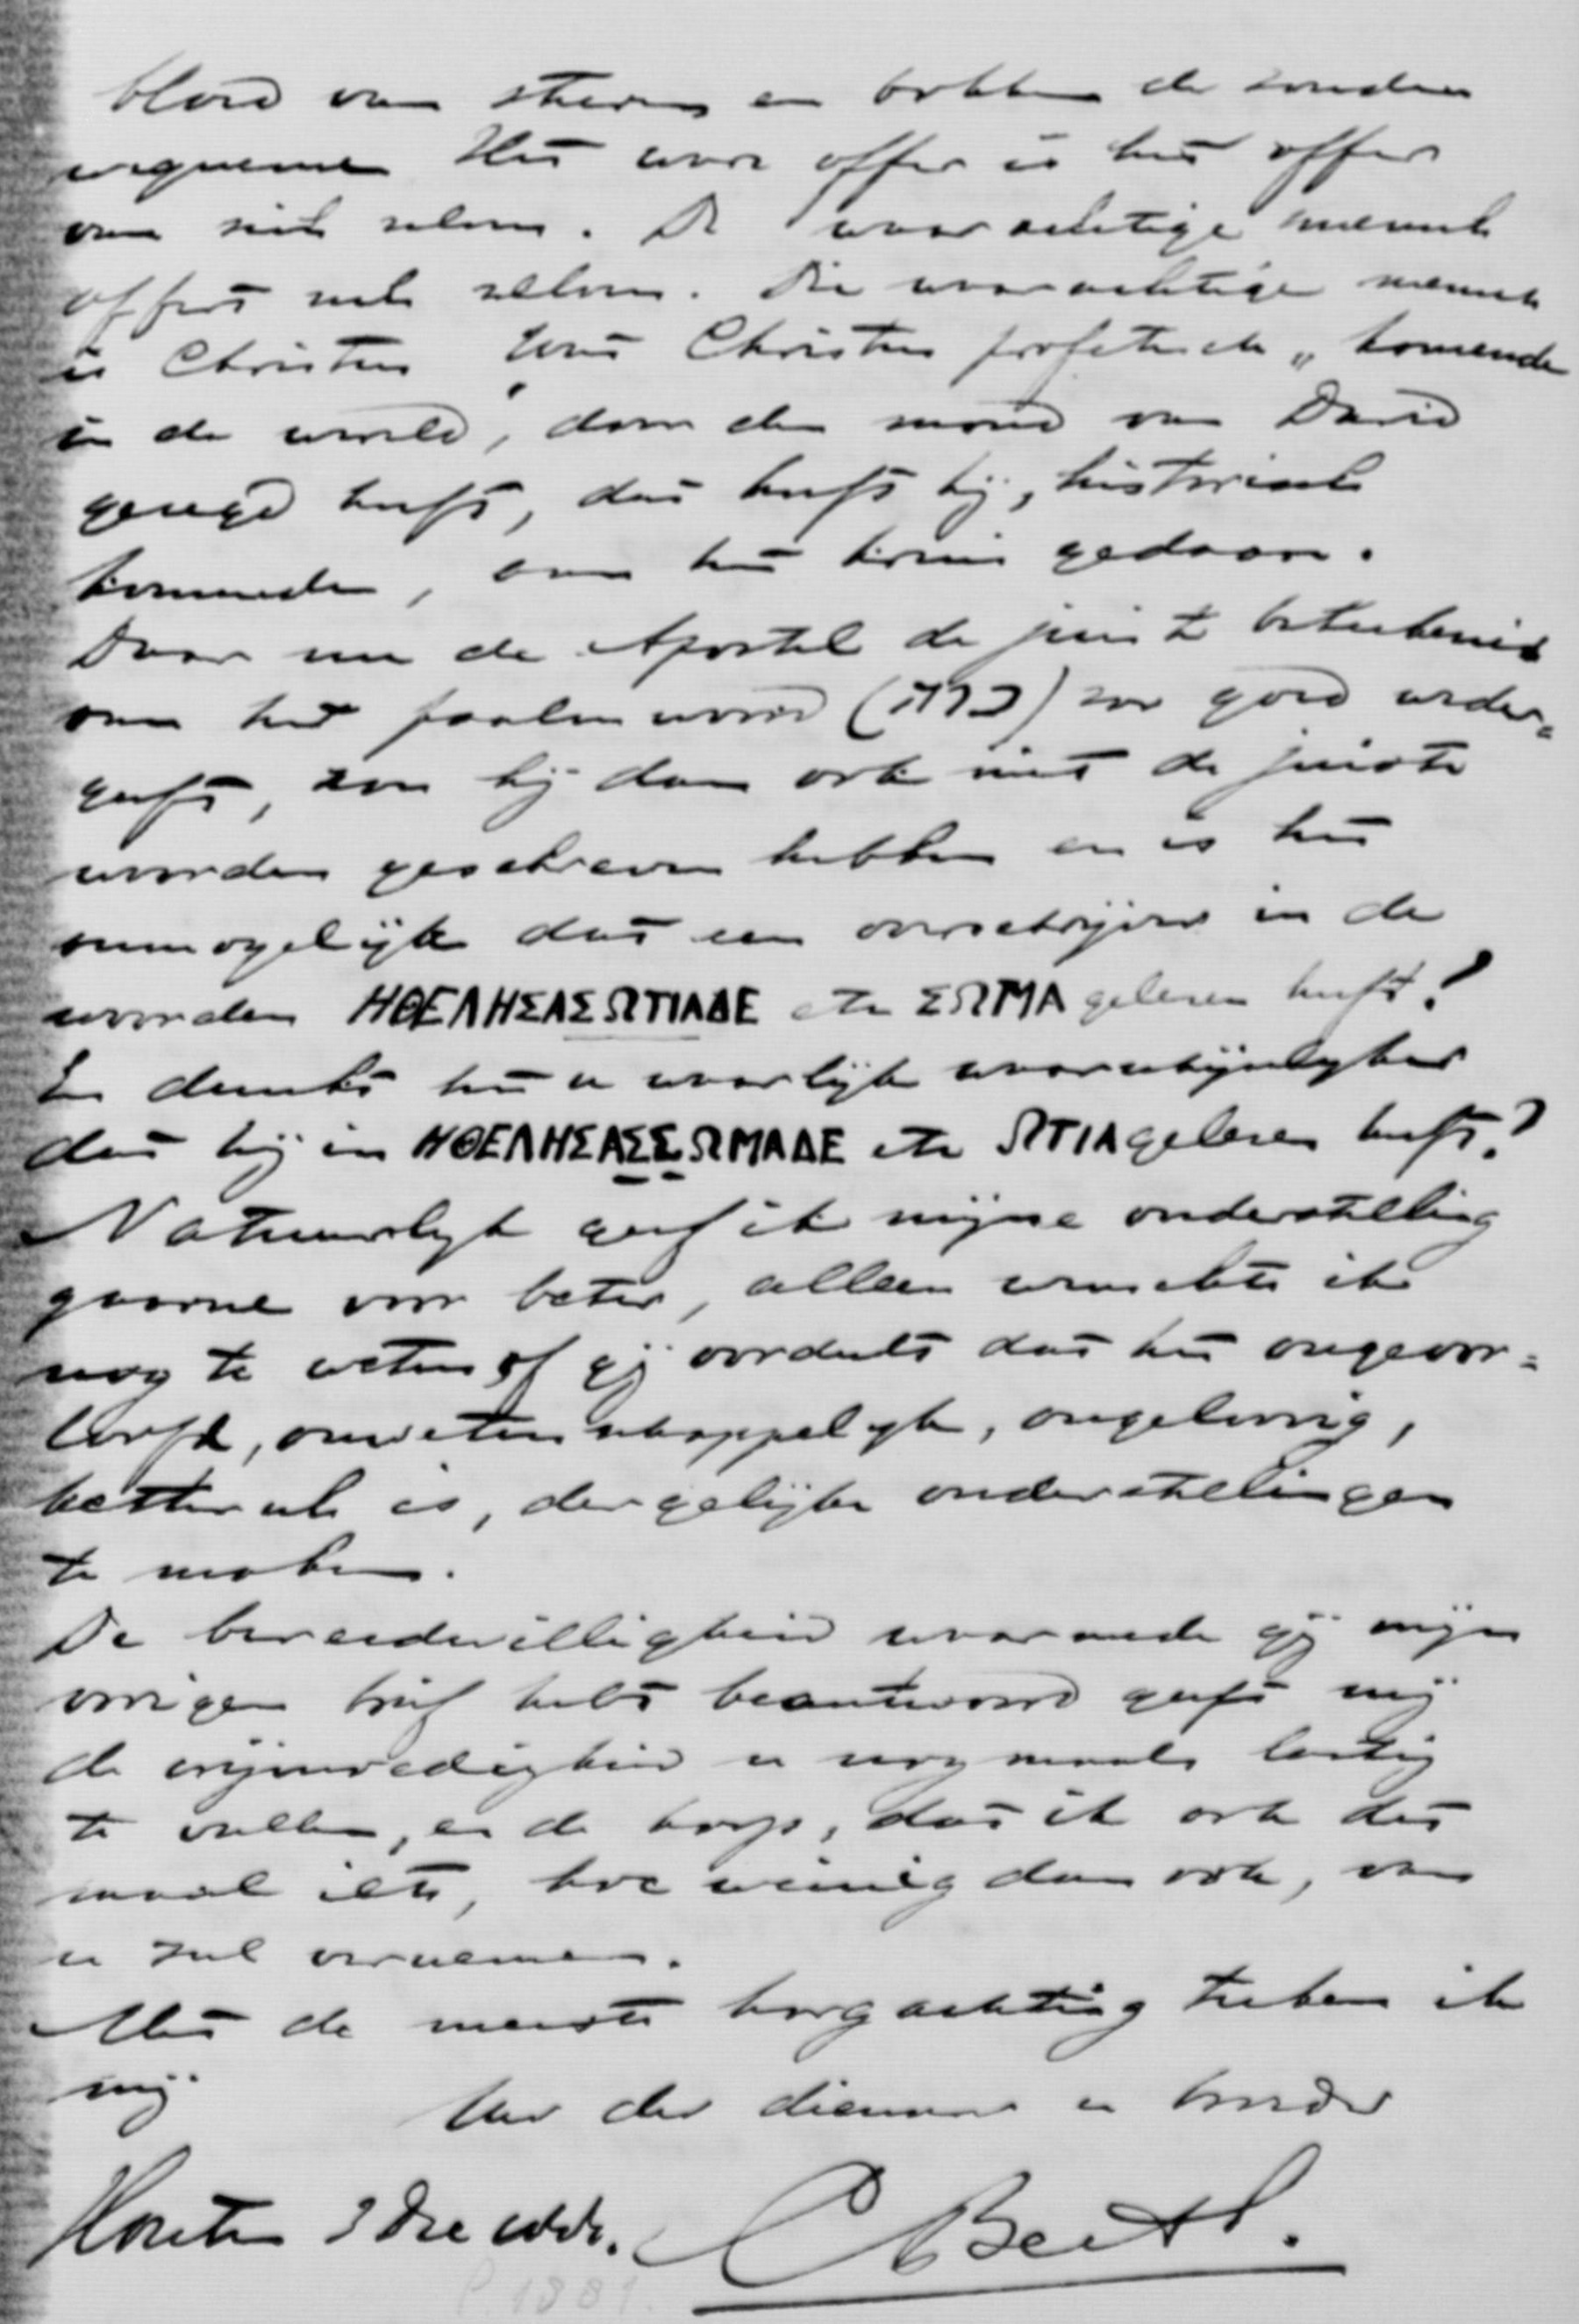 bloed van stieren en bokken de zonden
wegneme. Het ware offer is het offer
van zich zelven. De waarachtige mensch
offert zich zelven. Die waarachtige mensch
is Christus. Wat Christus profetisch „komende
in de wereld”, door den mond van David
gezegd heeft, dat heeft hij, historisch
komende, aan het kruis gedaan.
Daar nu de Apostel de juiste beteekenis
van het psalmwoord (כרה) zoo goed weder-
geeft, zou hij dan ook niet de juiste
woorden geschreven hebben en is het
onmogelijk dat een overschrijver in de
woorden ΗΘΕΛΗΣΑΣΩΤΙΑΔΕ etc ΣΩΜΑ gelezen heeft?
En dunkt het u waarlijk waarschijnlijker
dat hij in ΗΘΕΛΗΣΑΣΣΩΜΑΔΕ etc ΩΤΙΑ gelezen heeft?
Natuurlijk geef ik mijne onderstelling
gaarne voor beter, alleen wenschte ik
nog te weten of gij oordeelt dat het ongeoor-
loofd, onwetenschappelijk, ongeloovig,
kettersch is, dergelijke onderstellingen
te maken.
De bereidwilligheid waarmede gij mijn
vorigen brief hebt beantwoord geeft mij
de vrijmoedigheid u nogmaals lastig
te vallen, en de hoop, dat ik ook dit
maal iets, hoe weinig dan ook, van
u zal vernemen.
Met de meeste hoogachting teeken ik
mij
Uw dw dienaar en broeder
Houten 3 Dec